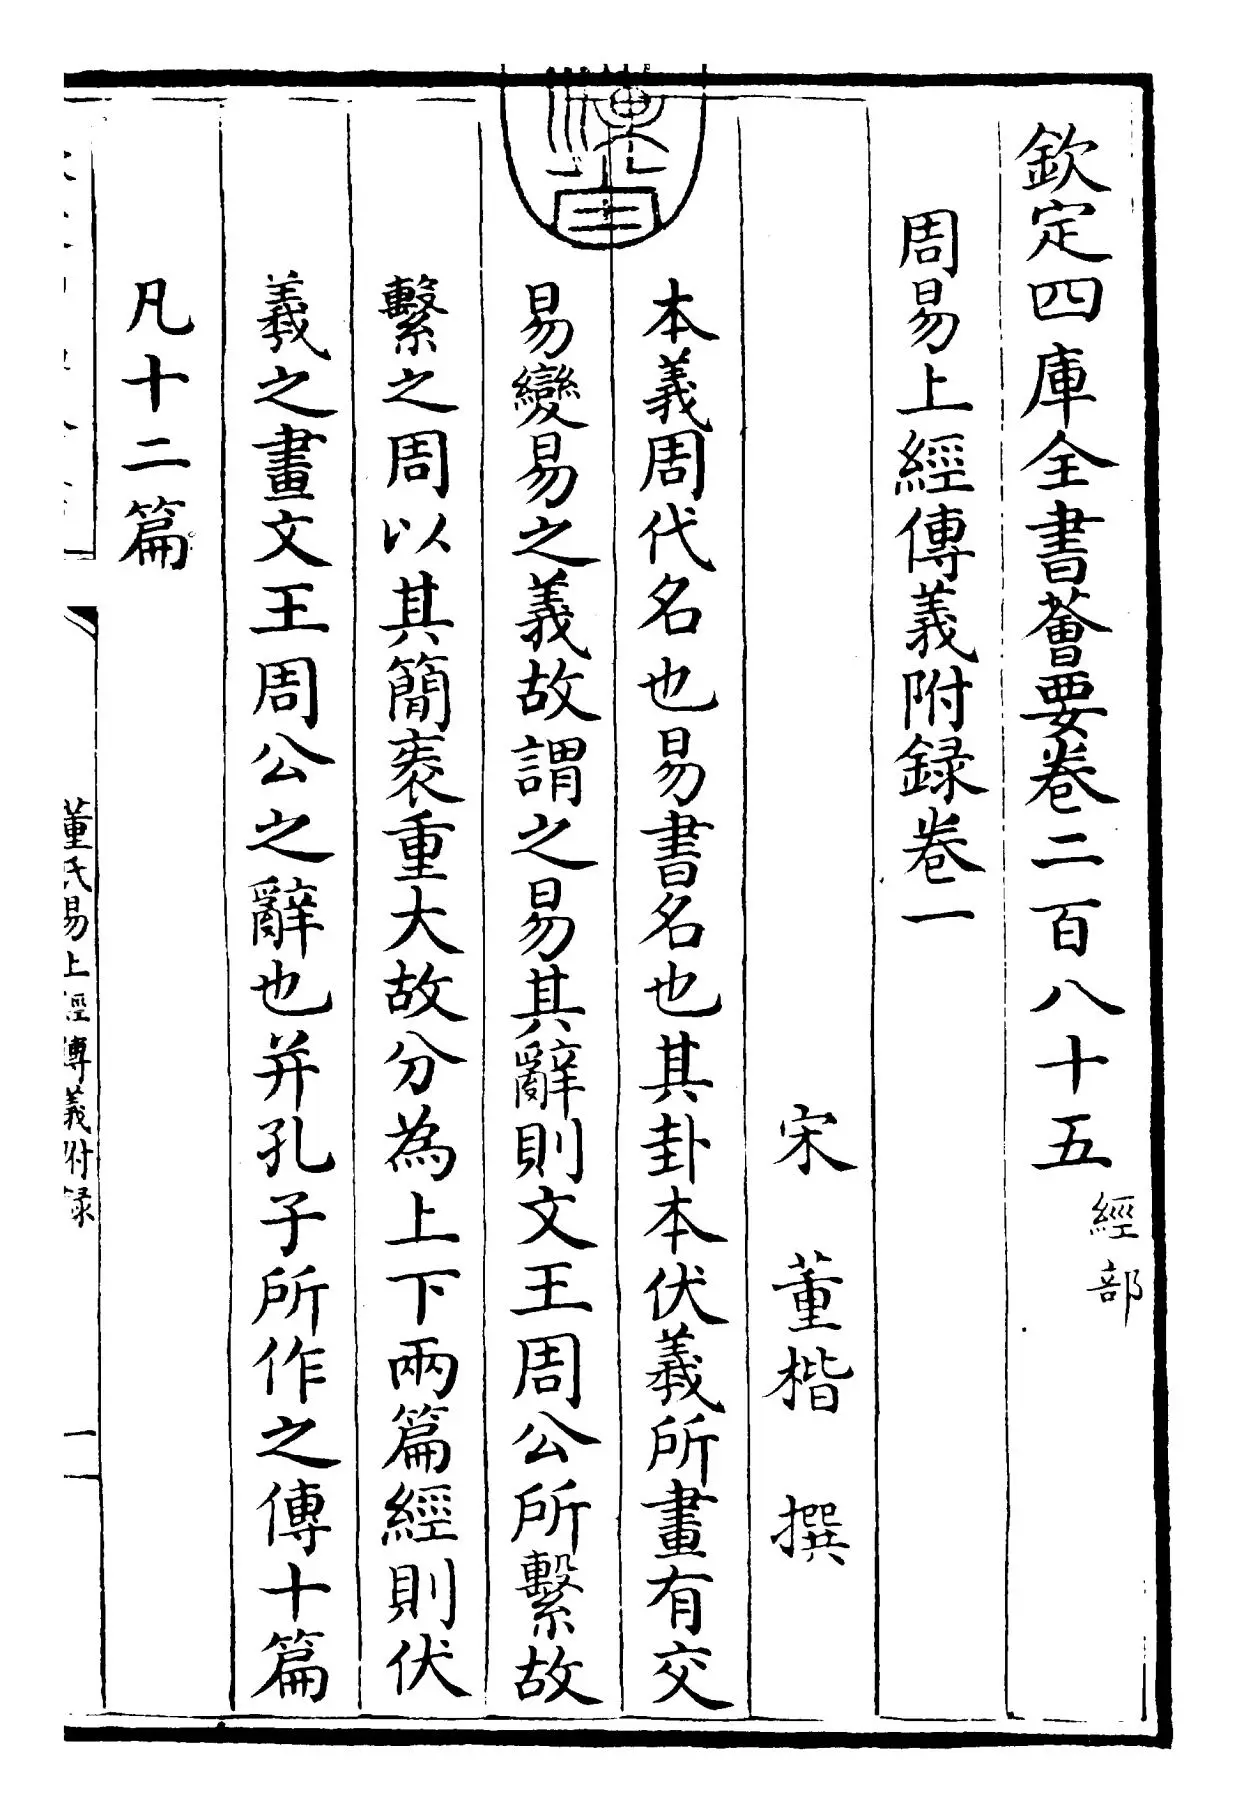 欽定四庫全書薈要卷二百八十五經部
周易上經傳義附録卷一
宋 董楷 撰
本義周代名也易書名也其卦本伏義所畫有交
易變易之義故謂之易其辭則文王周公所繫故
繫之周以其簡袠重大故分為上下兩篇經則伏
義之畫文王周公之辭也并孔子所作之傳十篇
凡十二篇
董氏易上經傳義附録
一